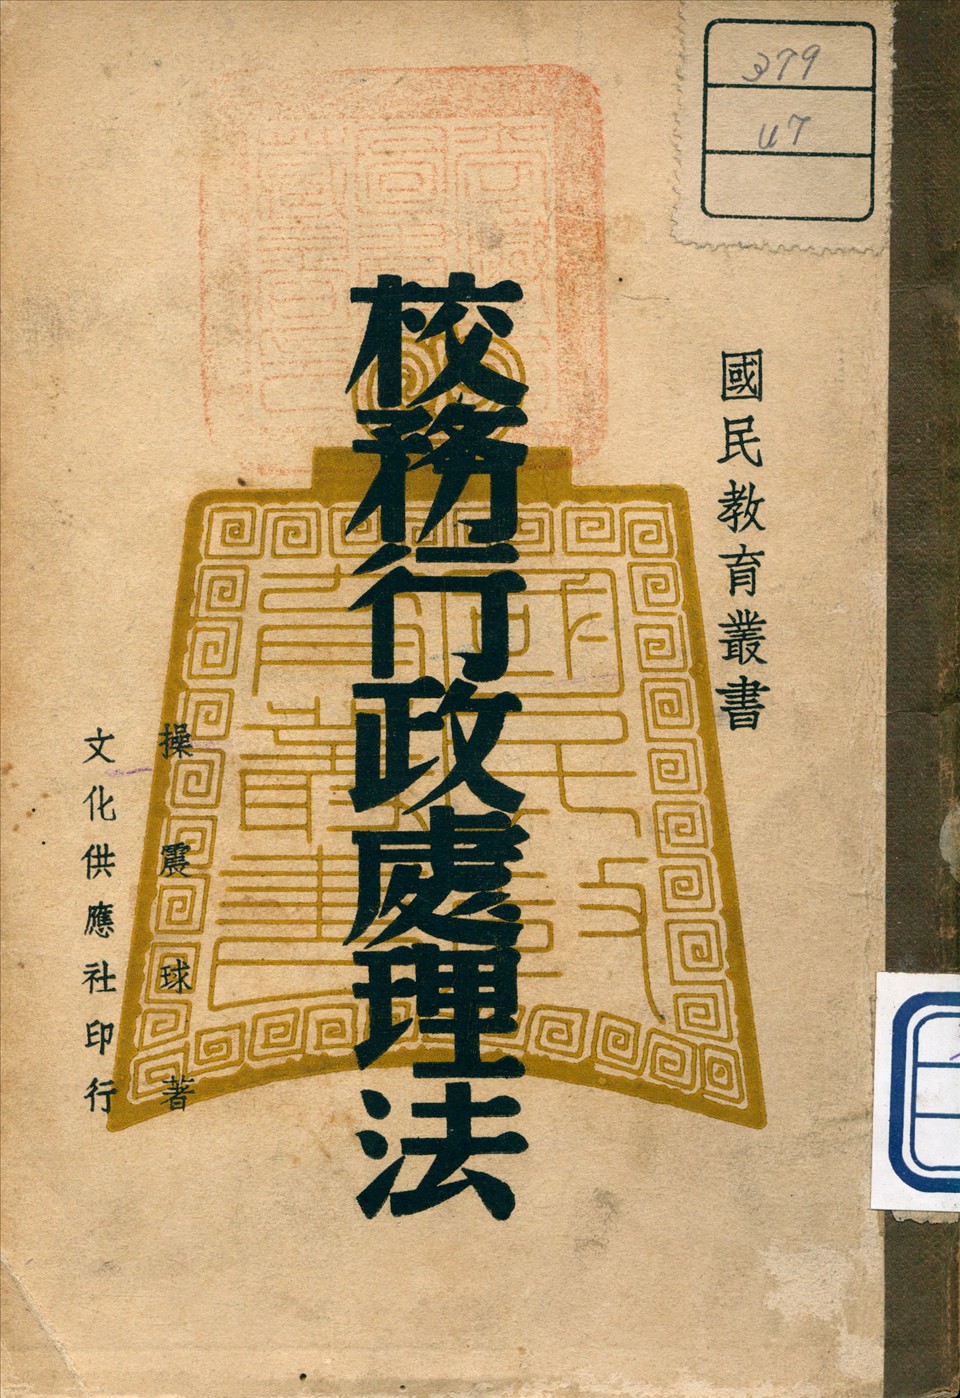 379
U7
國民教育叢書
校務行政處理法
操震球著
文化供應社印行
國民教
育叢書